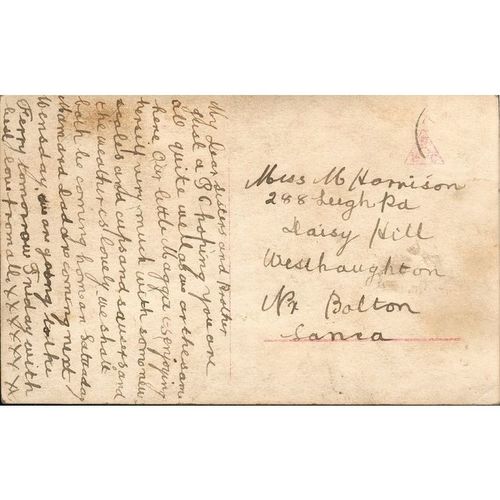 My Dear Sisters and Brother
Just a P C hoping you are
all quite well as we are the same
here Our little Maggie is enjoying
herself very much with some new
scales and cups and saucers and
the weather is lovely. we shall
both be coming home on Saturday
Mam and Dad are coming next
Wensday. we are going to the
Ferry tomorrow Friday with
best love from all X X X X X X
Miss M Harrison
288 Leigh Rd
Daisy Hill
Westhaughton
Nr Bolton
Lancs